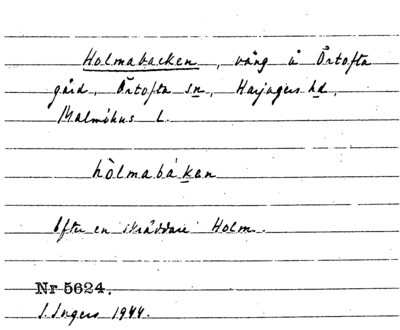 Holmabacken, vång å Örtofta
gård, Örtofta sn, Harjagers hd,
Malmöhus l.
hòlmabákan
Efter en skräddare Holm.
Nr 5624.
I. Ingers 1944.